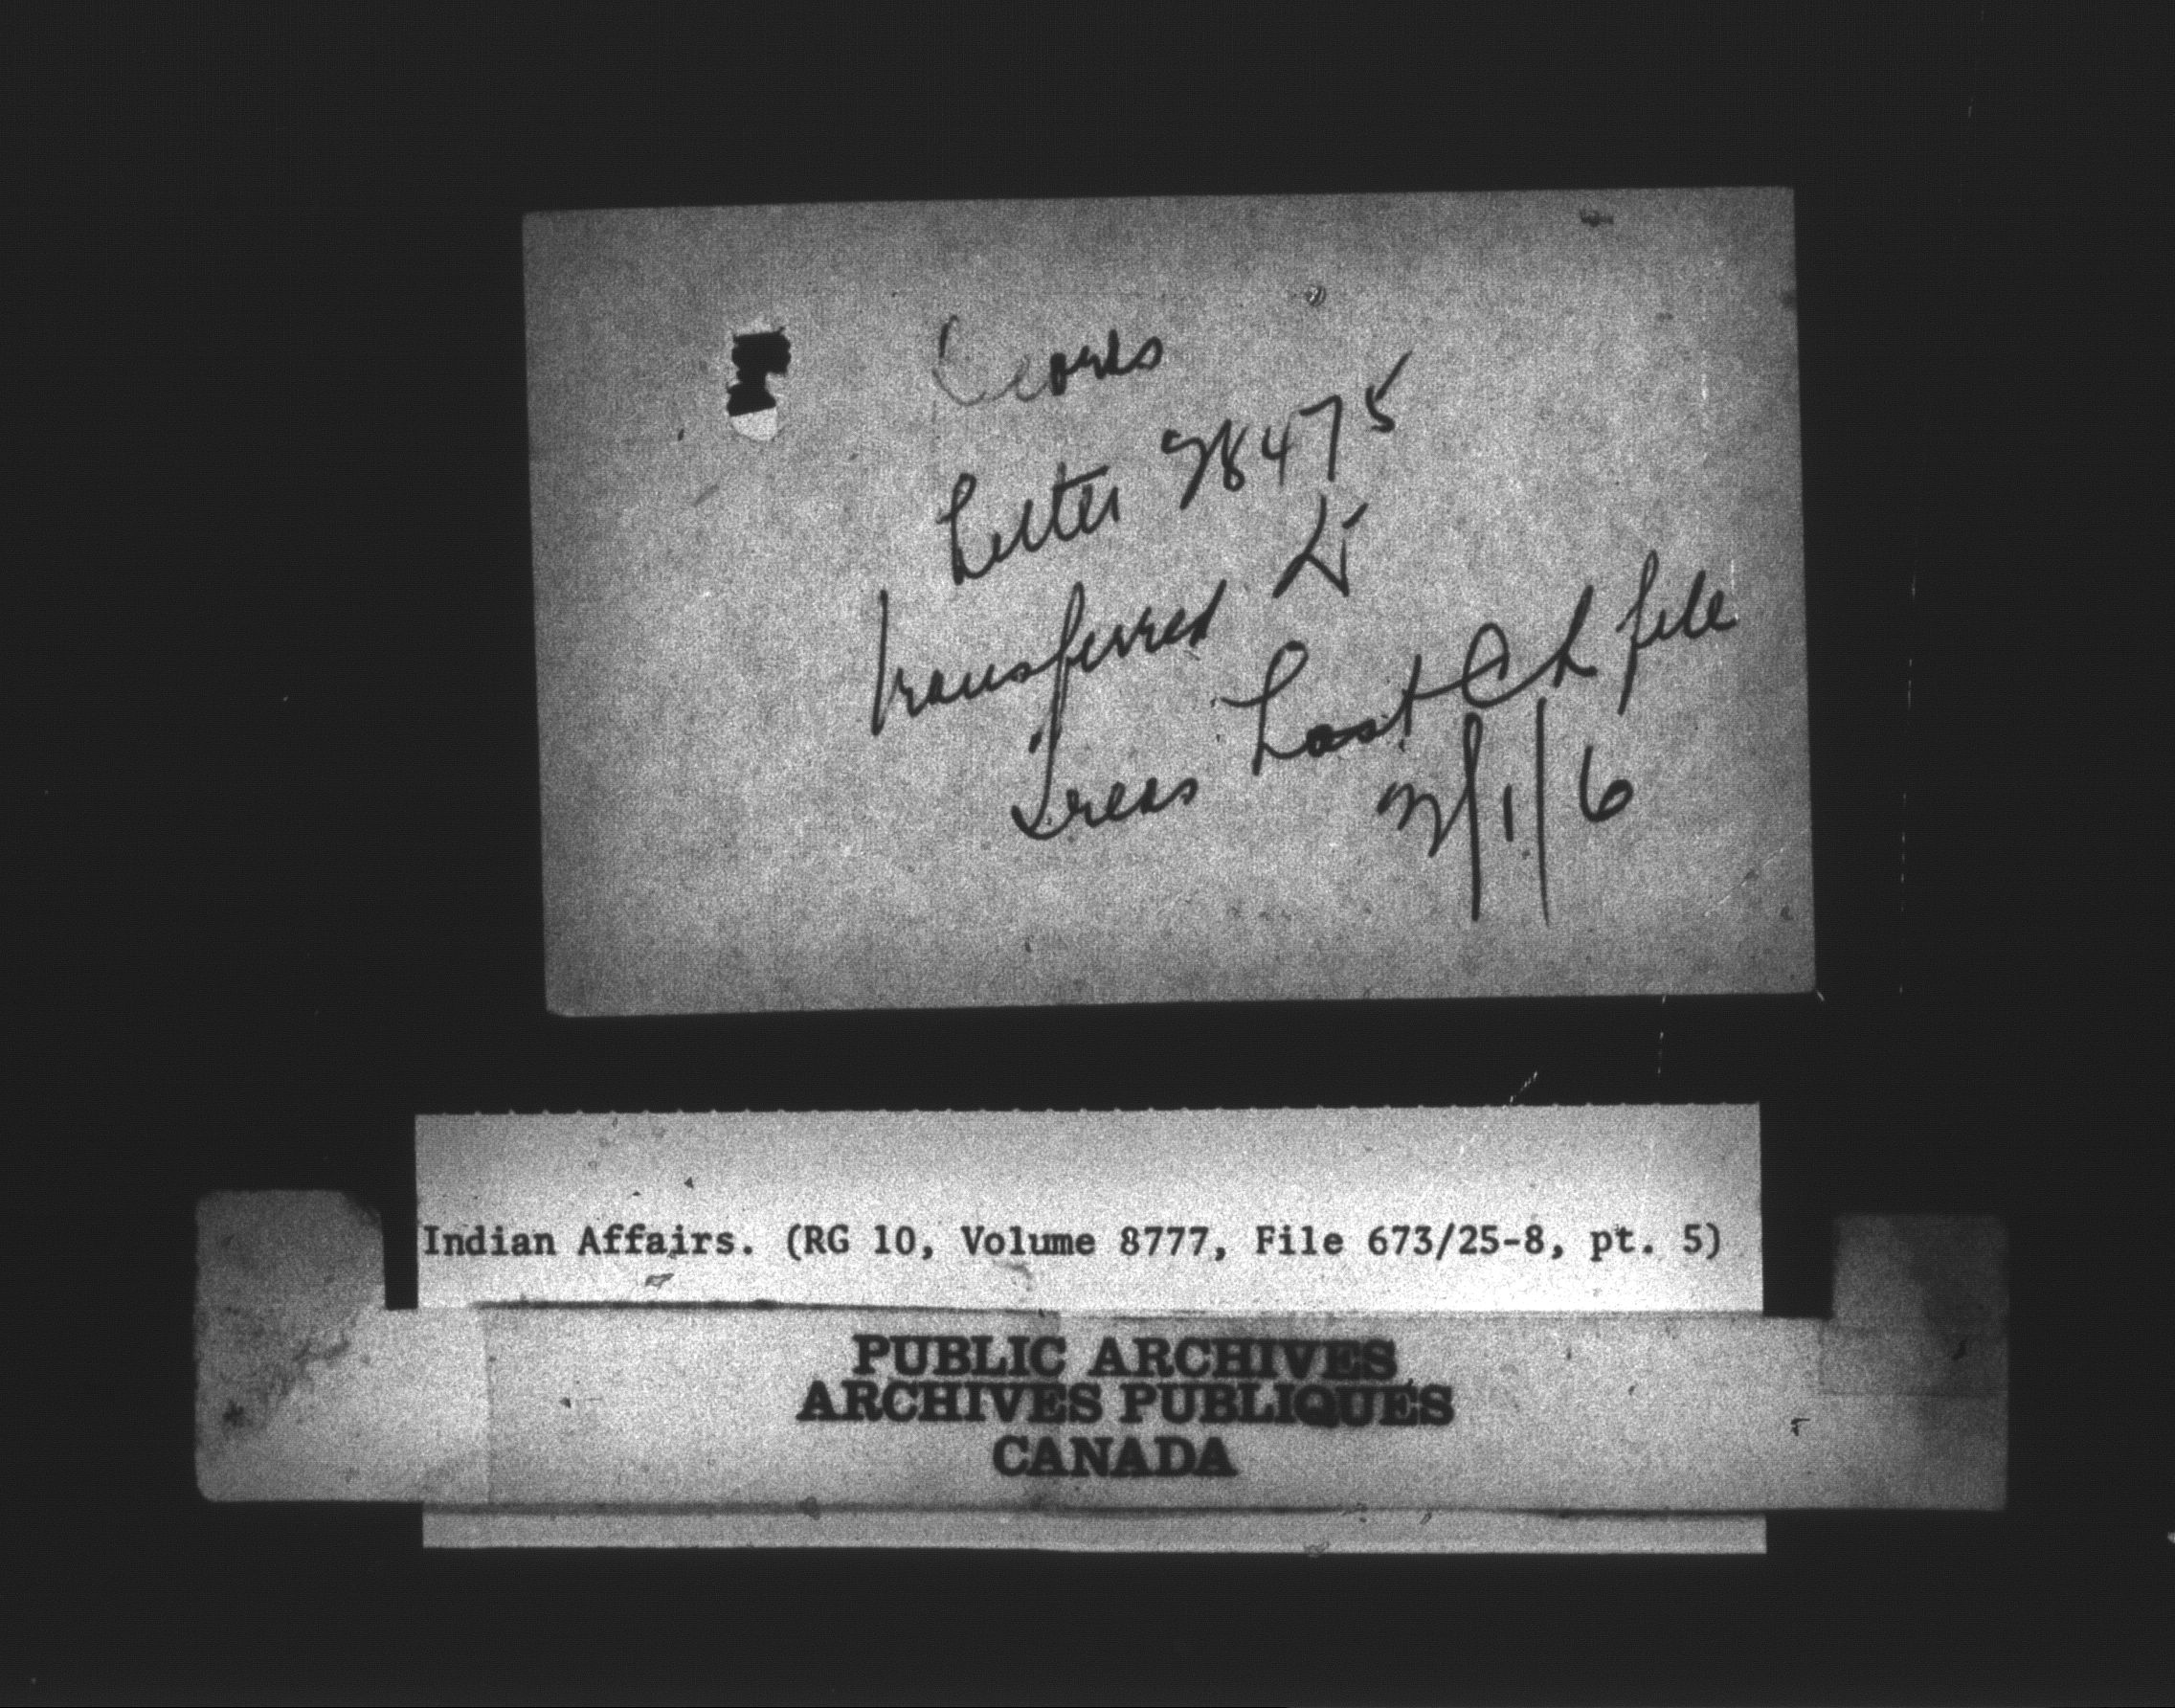 Letter 98475
transferred to
Trees Last Ch file
9/1/6
Indian Affairs. (RG 10, Volume 8777, File 673/25-8, pt. 5)
PUBLIC ARCHIVES
ARCHIVES PUBLIQUES
CANADA